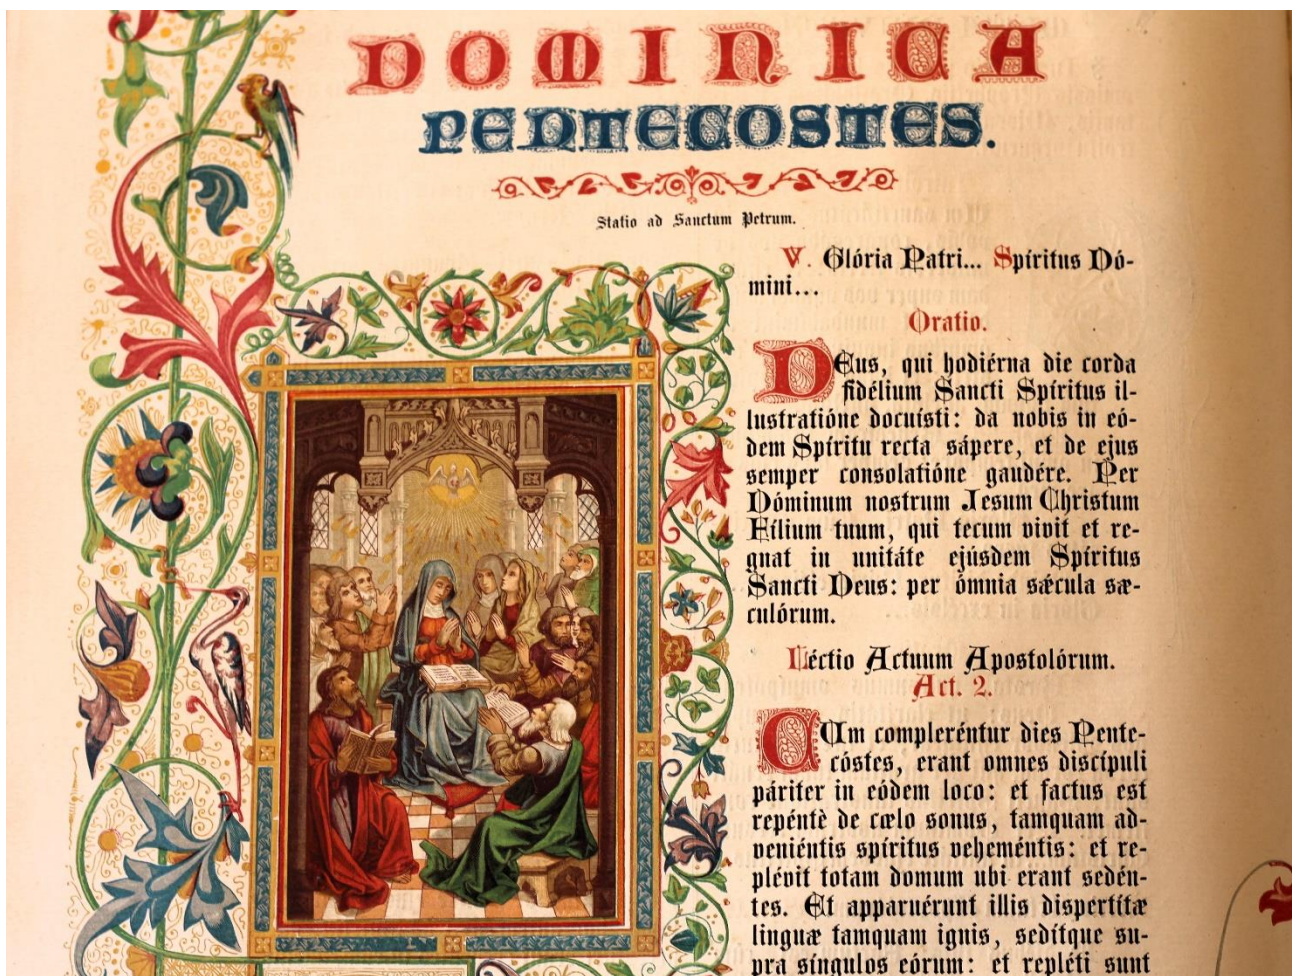 DOMINICA
PENTECOSTES.
Statio ad Sanctum Petrum.
V. Glória Patri... Spíritus Dó-
mini...
Oratio.
DEus, qui hodiérna die corda
fidélium Sancti Spíritus il-
lustratióne docuísti: da nobis in eó-
dem Spíritu recta sápere, et de ejus
semper consolatióne gaudére. Per
Dóminum nostrum Jesum Christum
Fílium tuum, qui tecum vivit et re-
gnat in unitáte ejúsdem Spíritus
Sancti Deus: per ómnia sǽcula sæ-
culórum.
Léctio Actuum Apostolórum.
Act. 2.
CUm compleréntur dies Pente-
cóstes, erant omnes discípuli
páriter in eódem loco: et factus est
repéntè de cœlo sonus, tamquam ad-
veniéntis spíritus veheméntis: et re-
plévit totam domum ubi erant sedén-
tes. Et apparuérunt illis dispertítæ
linguæ tamquam ignis, sedítque su-
pra síngulos eórum: et repléti sunt